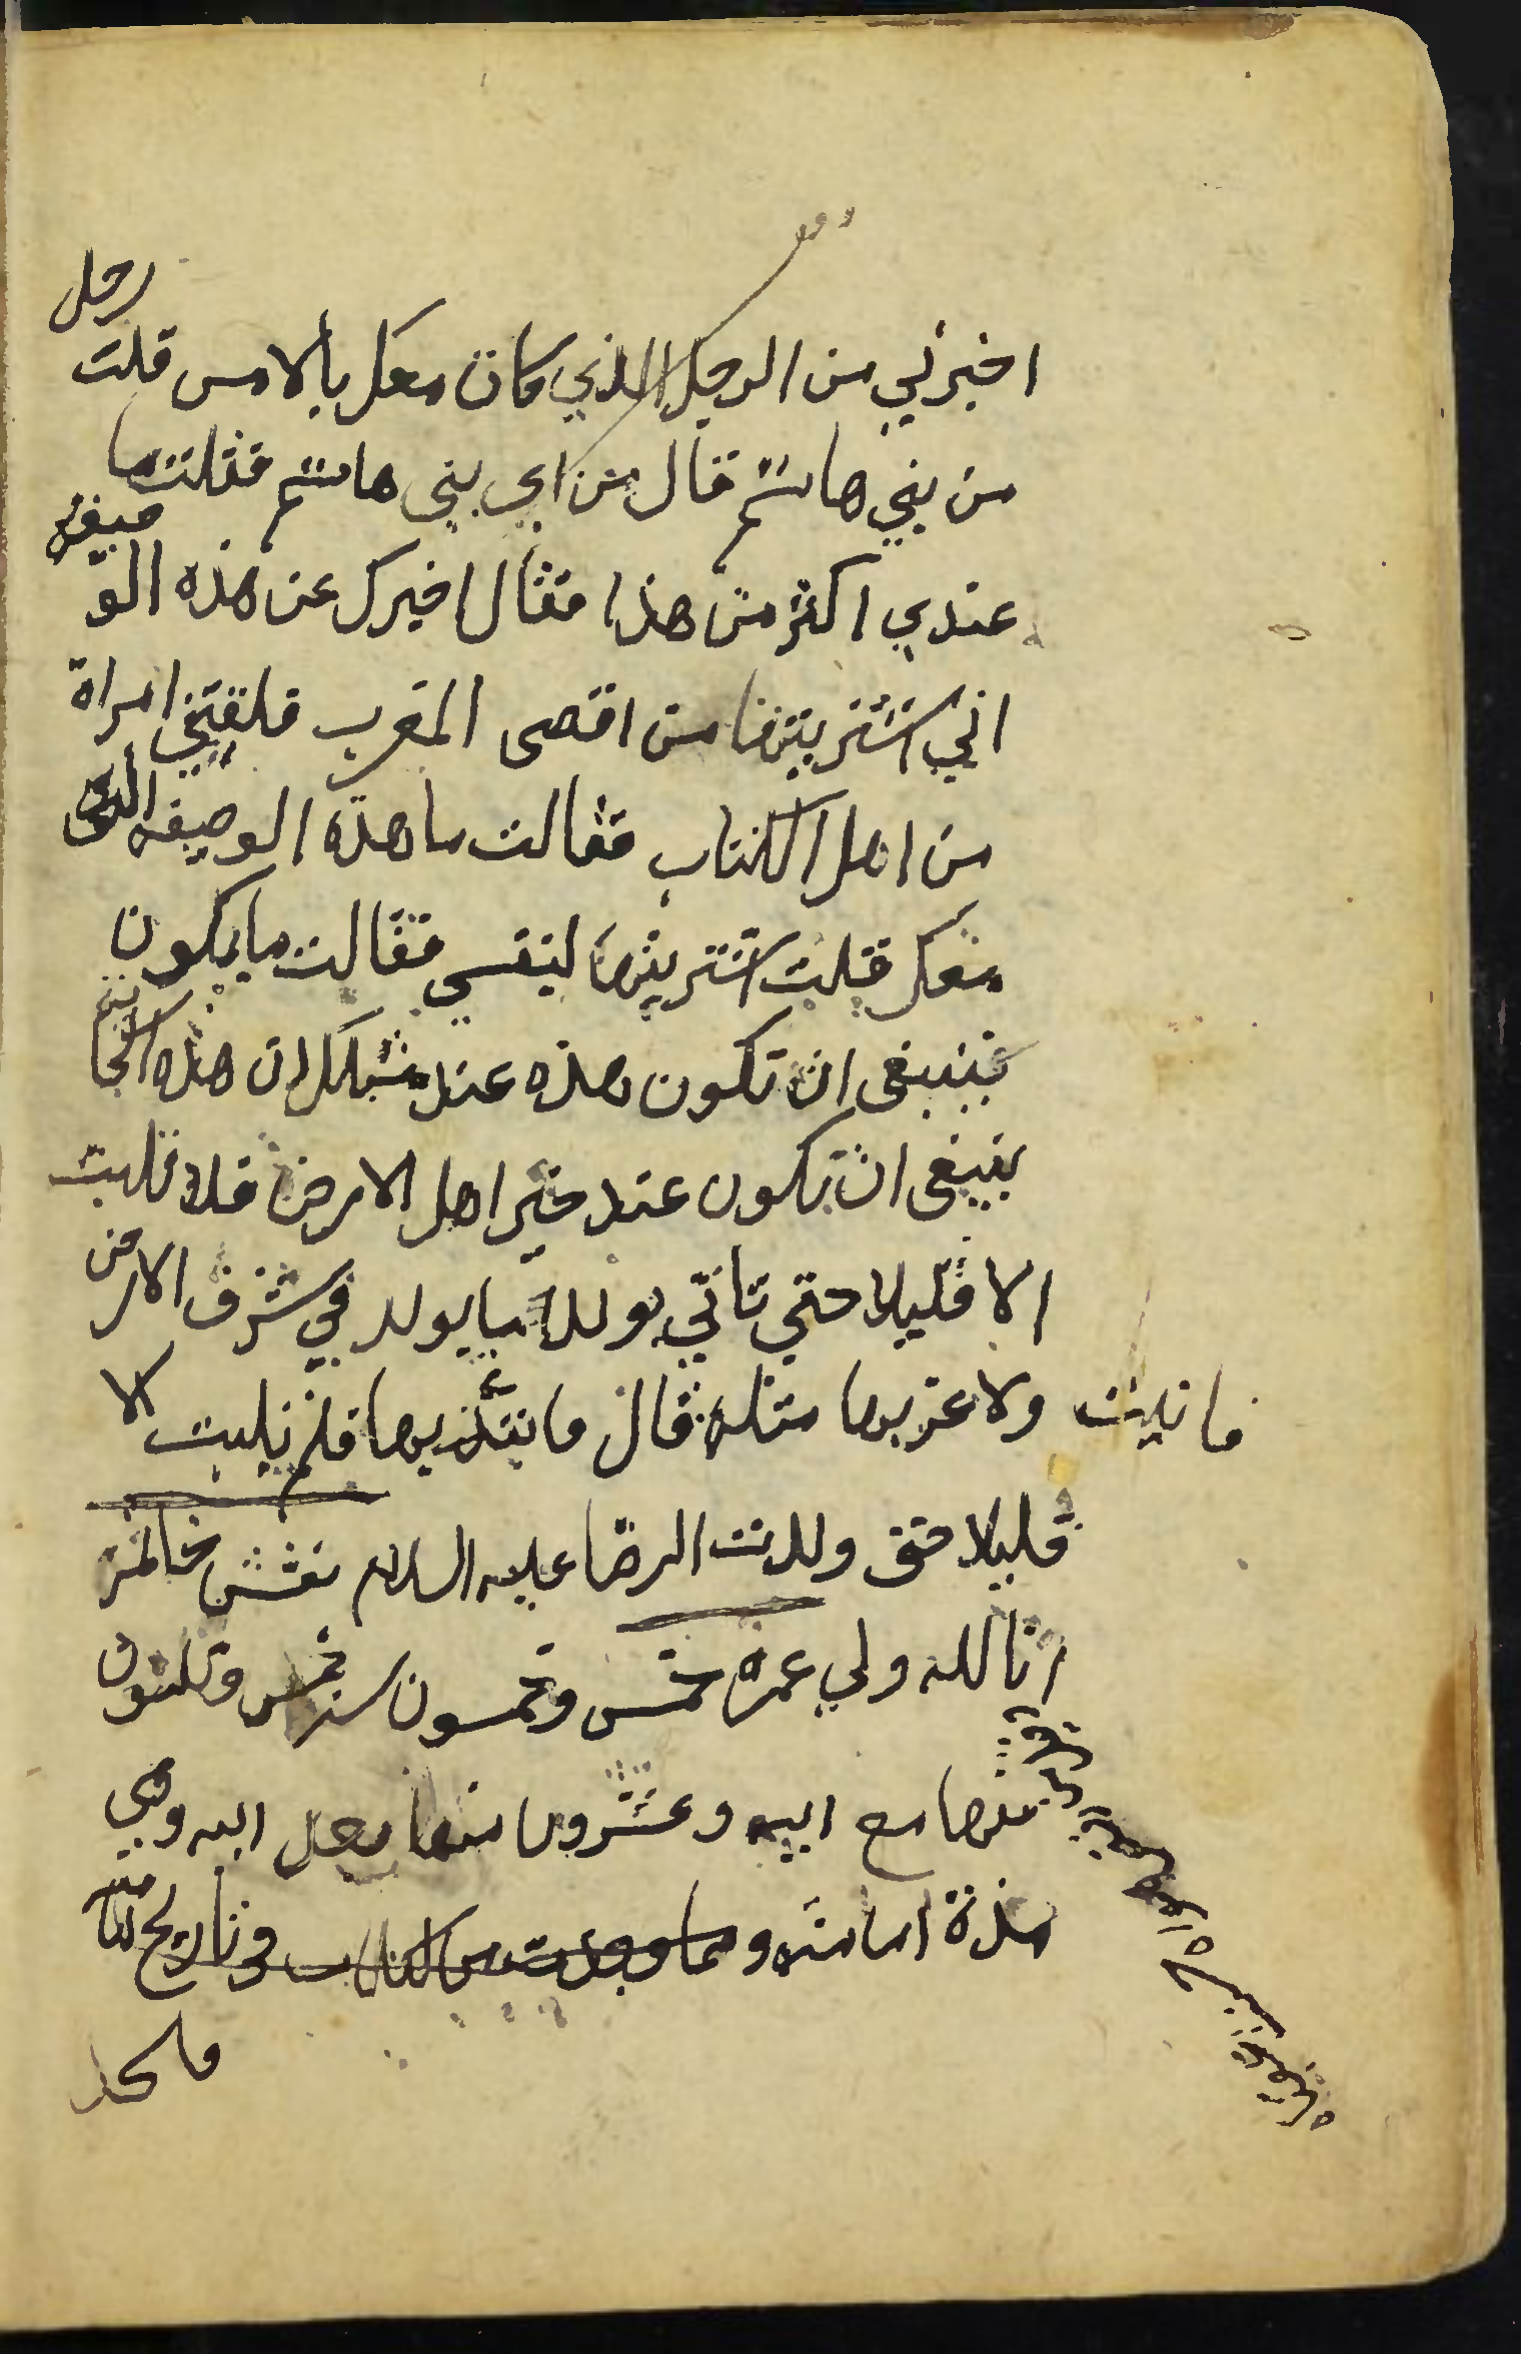 اخبرني من الرجل الذي كان معك بالامس قلت رجل
من بني هاشم قال من اي بني هاشم فقلت ما
عندي اكثر من هذا فقال اخبرك عن هذه الوصيفة
اني اشتريتها من اقصى المغرب فلقتني امراة
من اهل الكتاب فقالت ما هذه الوصيفه التي
معك قلت اشتريتها لنفسي فقالت ما يكون
ينبغي ان تكون هذه عند مثلك ان هذه الجا
ينبغي ان تكون عند خير اهل الارض فلا تلبث
الا قليلا حتي تاتي بولد ما يولد في شرق الارض
ولا غربها مثله قال فاتيته بها فلم تلبث الا
فما تلبث
قليلا حتى ولدت الرضا عليه السلام نقش خاتمه
انا لله ولي عمره خمس وخمسون سنه خمس وثلثون
منها مع ابيه وعشرون منها بعد ابيه وهي
مدة امامته وما وجدت من الكتاب في تاريخ